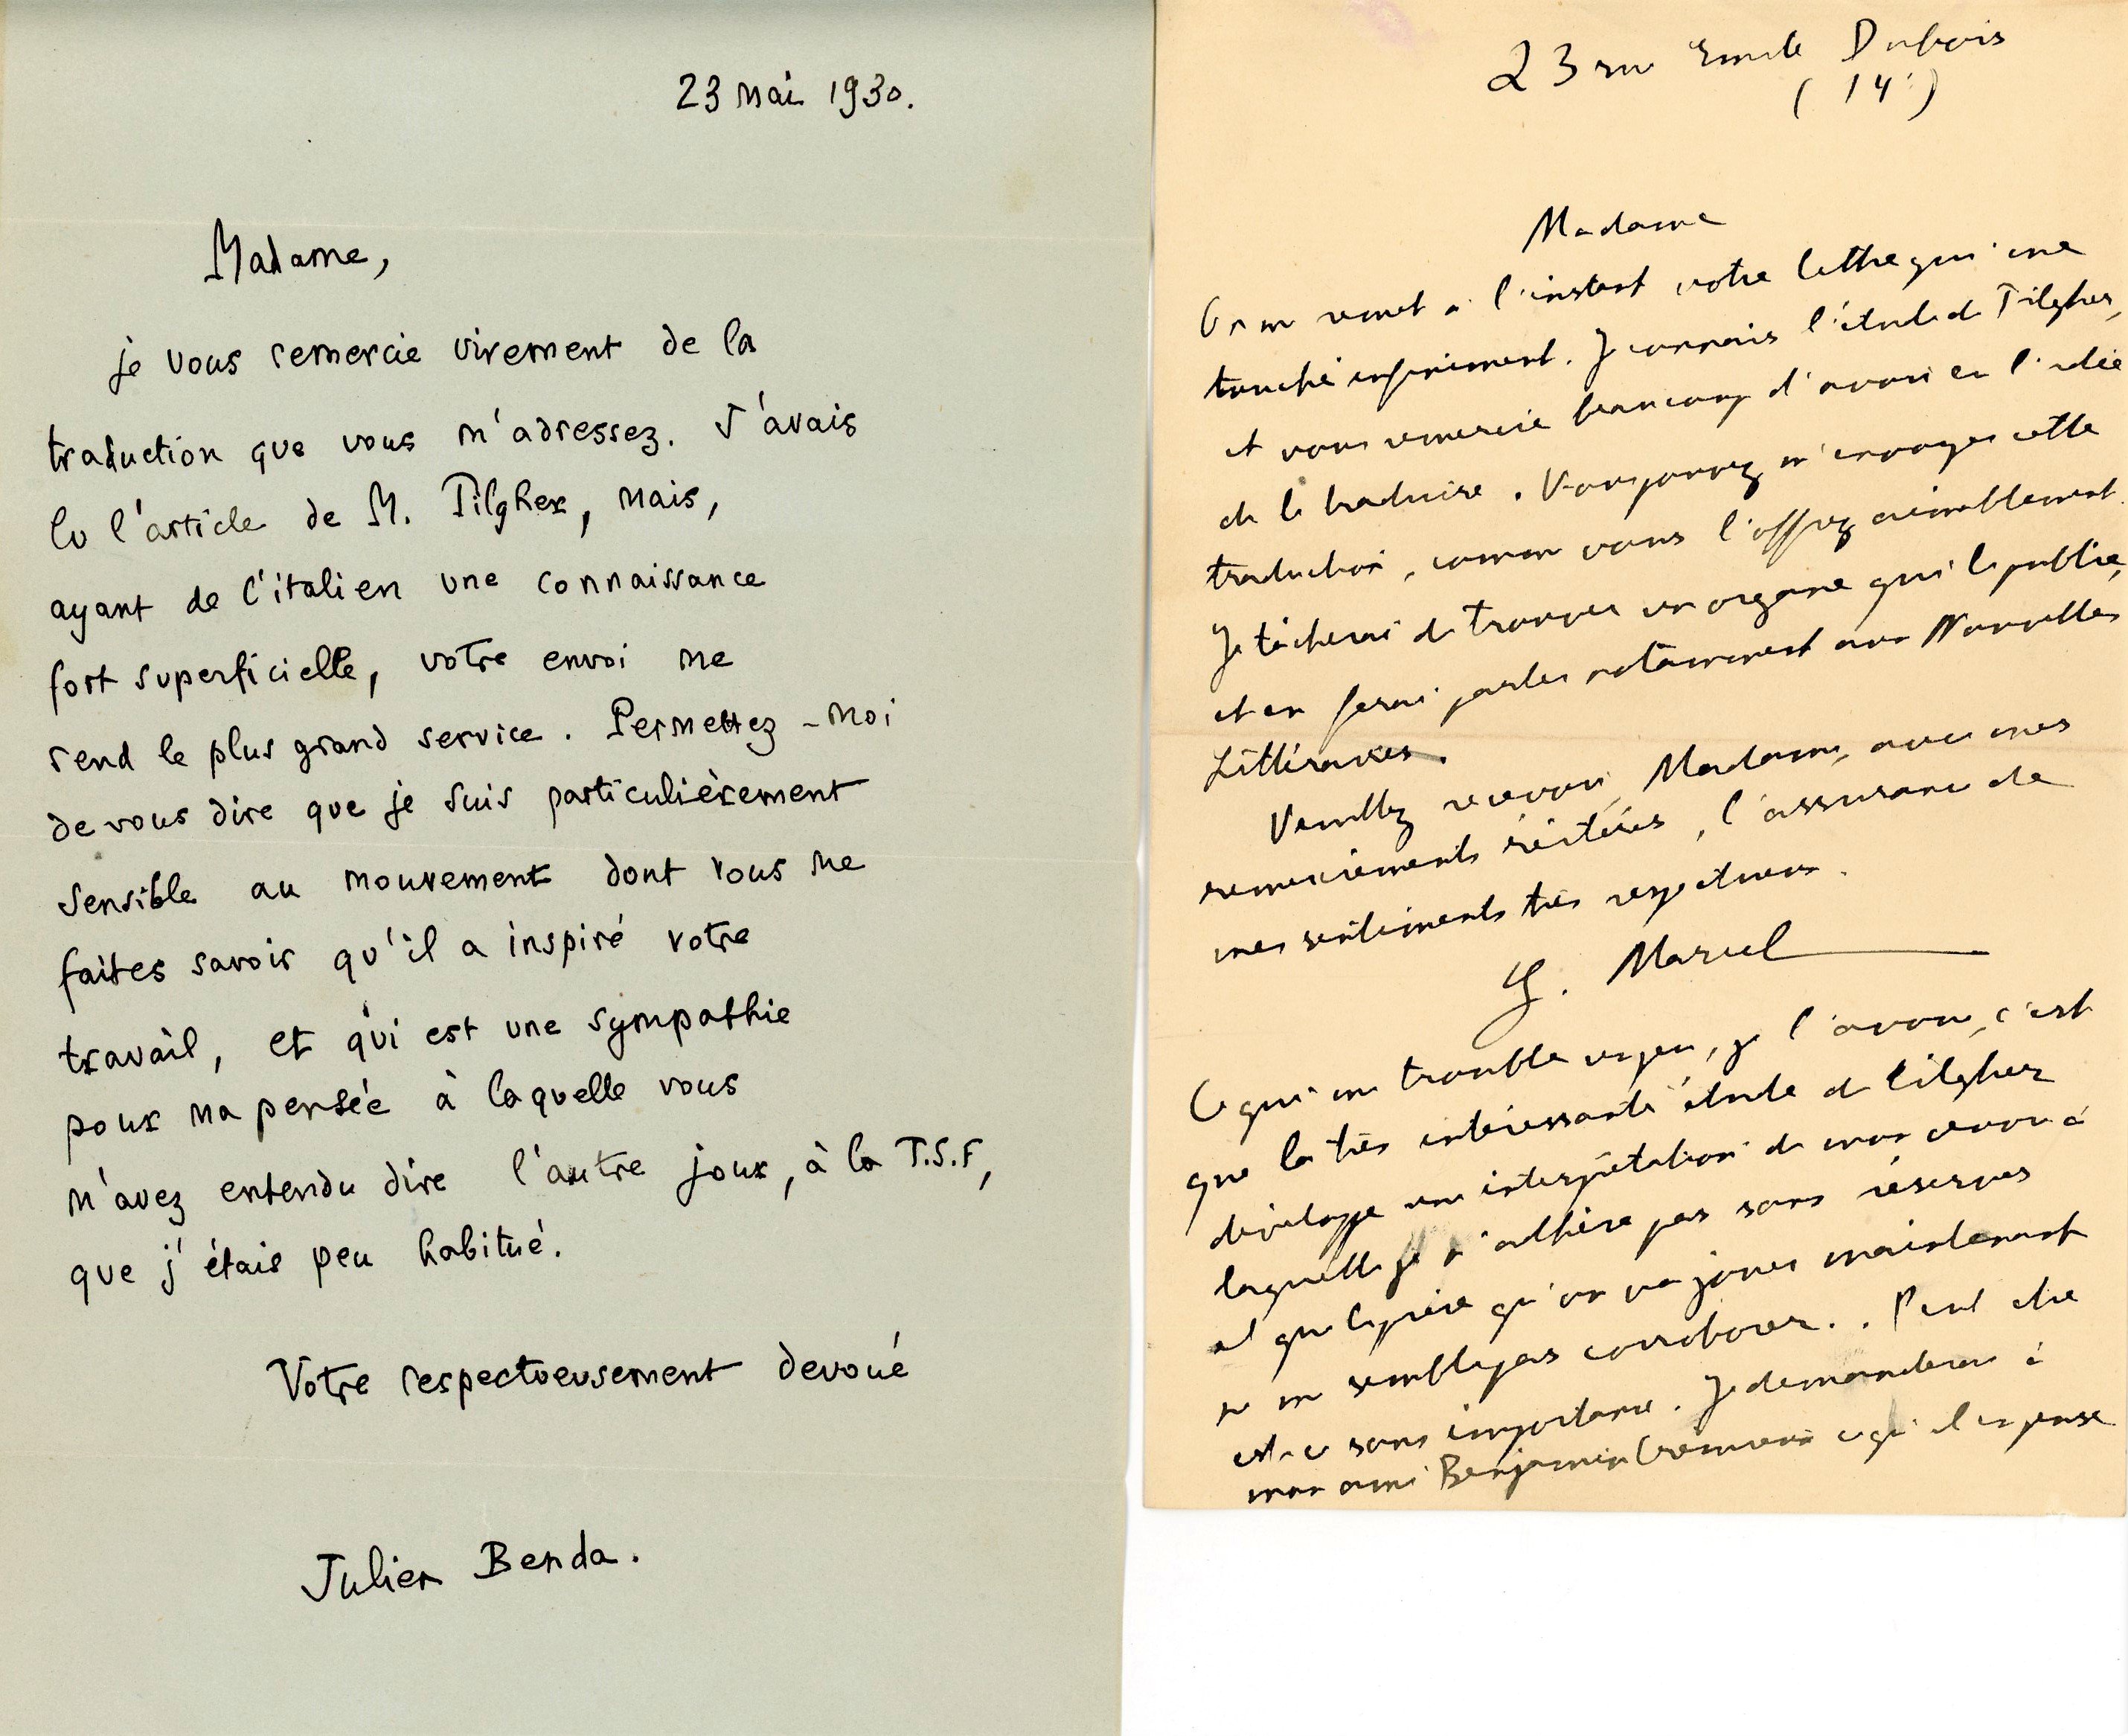 23 mai 1930.
Madame,
je vous remercie vivement de la
traduction que vous m'adressez. J'avais
lu l'article de M. Tilgher, mais,
ayant de l'italien une connaissance
fort superficielle, votre envoi me
rend le plus grand service. Permettez-moi
de vous dire que je suis particulièrement
sensible au mouvement dont vous me
faites savoir qu'il a inspiré votre
travail, et qui est une sympathie
pour ma pensée à laquelle vous
m'avez entendu dire l'autre jour, à la T.S.F,
que j'étais peu habitué.
Votre respectueusement devoué
Julien Benda.
23 rue Emile Dubois
(14e)
Madame
On me remet à l'instant votre lettre qui me
touche infiniment. Je connais l'étude de Tilgher,
et vous remercie beaucoup d'avoir eu l'idée
de la traduire. Vous pouvez m'envoyer cette
traduction, comme vous l'offrez aimablement.
Je tâcherai de trouver un organe qui la publie,
et en ferai parler notamment aux Nouvelles
Littéraires.
Veuillez recevoir, Madame, avec mes
remerciements réitérés, l'assurance de
mes sentiments très respectueux.
G. Marcel
Ce qui me trouble un peu, je l'avoue, c'est
que la très intéressante étude de Tilgher
développe une interprétation de mon œuvre à
laquelle je n'adhère pas sans réserves
et que la pièce qu'on va jouer maintenant
ne me semble pas corroborer.. Peut être
est-ce sans importance. Je demanderai à
mon ami Benjamin Crémieux ce qu'il en pense